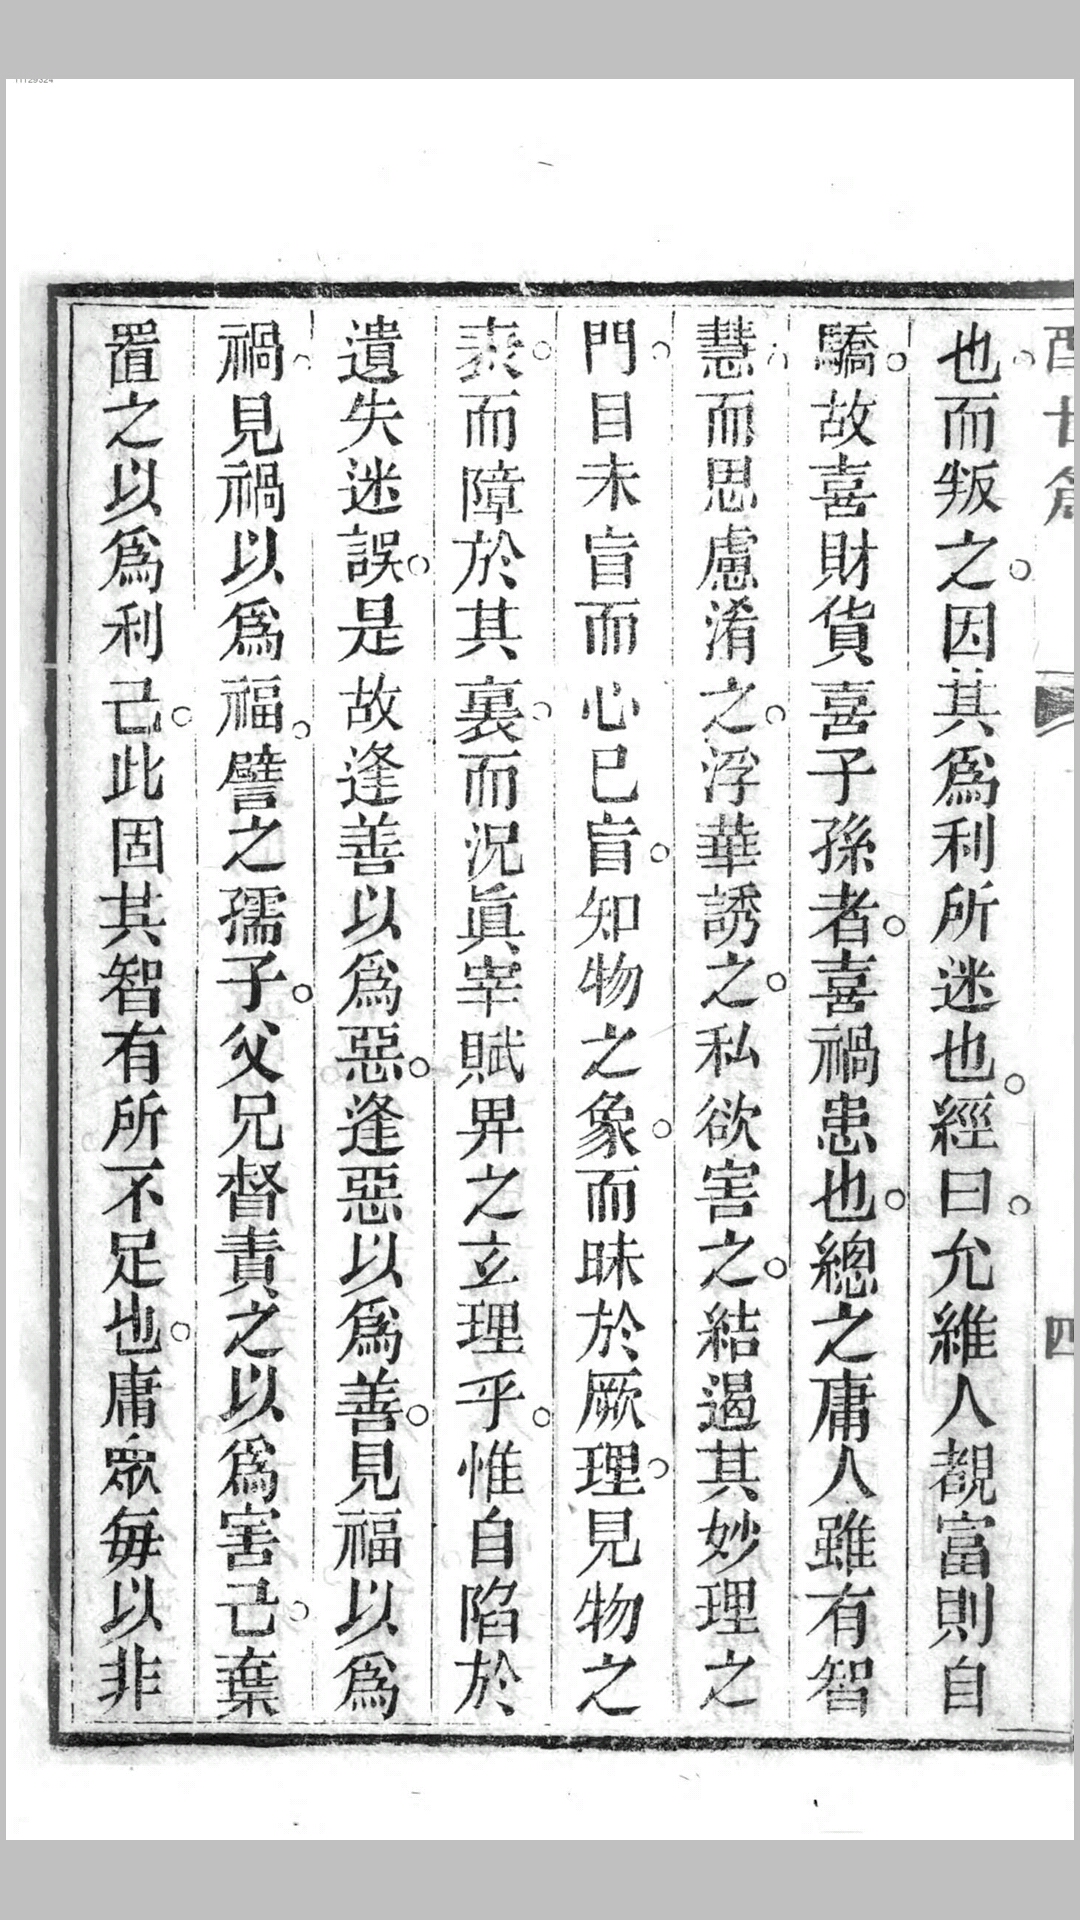 也而叛之。因其爲利所迷也。經曰。允維人覩富則自
驕。故喜財貨喜子孫者。喜禍患也。總之庸人雖有智
慧。而思慮淆之。浮華誘之。私欲害之。結遏其妙理之
門。目未盲而心已盲。知物之象。而昧於厥理。見物之
表。而障於其裏。而況眞宰賦畀之玄理乎。惟自陷於
遺失迷誤。是故逢善以爲惡。逢惡以爲善。見福以爲
禍。見禍以爲福。譬之孺子。父兄督責之以爲害己。棄
置之以爲利己。此固其智有所不足也。庸衆每以非
四